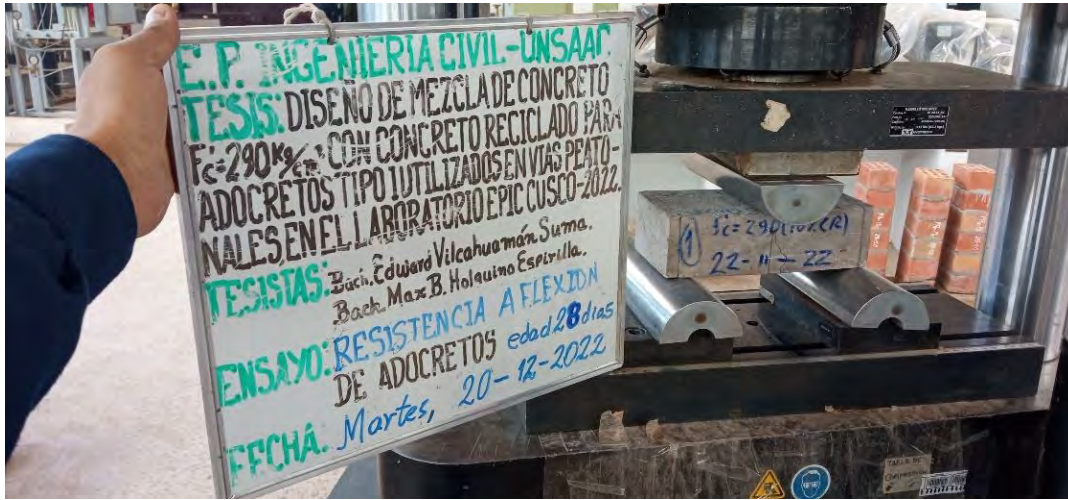 E.P. INGENIERIA CIVIL-UNSAAC.
TESIS: DISEÑO DE MEZCLA DE CONCRETO
F'c=290 Kg/cm², CON CONCRETO RECICLADO PARA
ADOCRETOS TIPO 1 UTILIZADOS EN VIAS PEATO-
NALES, EN EL LABORATORIO EPIC CUSCO-2022.
TESISTAS: Bach. Eduard Vilcahuamán Suma.
Bach. Max B. Holquino Espirilla.
ENSAYO: RESISTENCIA A FLEXION
DE ADOCRETOS edad 28 dias
FECHA. Martes, 20-12-2022
1 f'c=290(10%CR)
22-11-22
TABLA DE